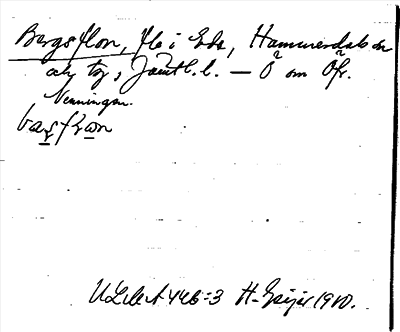 Bergsflon, flo i Ede, Hammerdals sn
och tg, Jämtl. l. — Ö om Öfr.
Venningen.
bargflᴐn
ULMA 446:3 H. Geijer 1910.